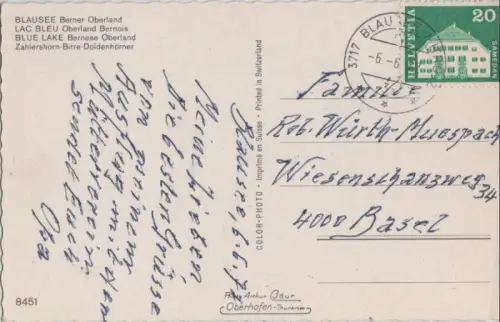 BLAUSEE Berner Oberland
LAC BLEU Oberland Bernois
BLUE LAKE Bernese Oberland
Zahlershorn-Birre-Doldenhörner
Blausee, 6.6.
Meine Lieben
Die besten Grüsse
von meinem
Ausflug mit dem
Mütterverein
sendet Euch
COLOR-PHOTO - Imprimé en Suisse - Printed in Switzerland
8451
Photo Arthur Baur
Oberhofen-Thunersee
3717 BLAUSEE
HELVETIA 20
SAMEDAN
Familie
Rob. Würth-Muespach
Wiesenschanzweg 34
4000 Basel